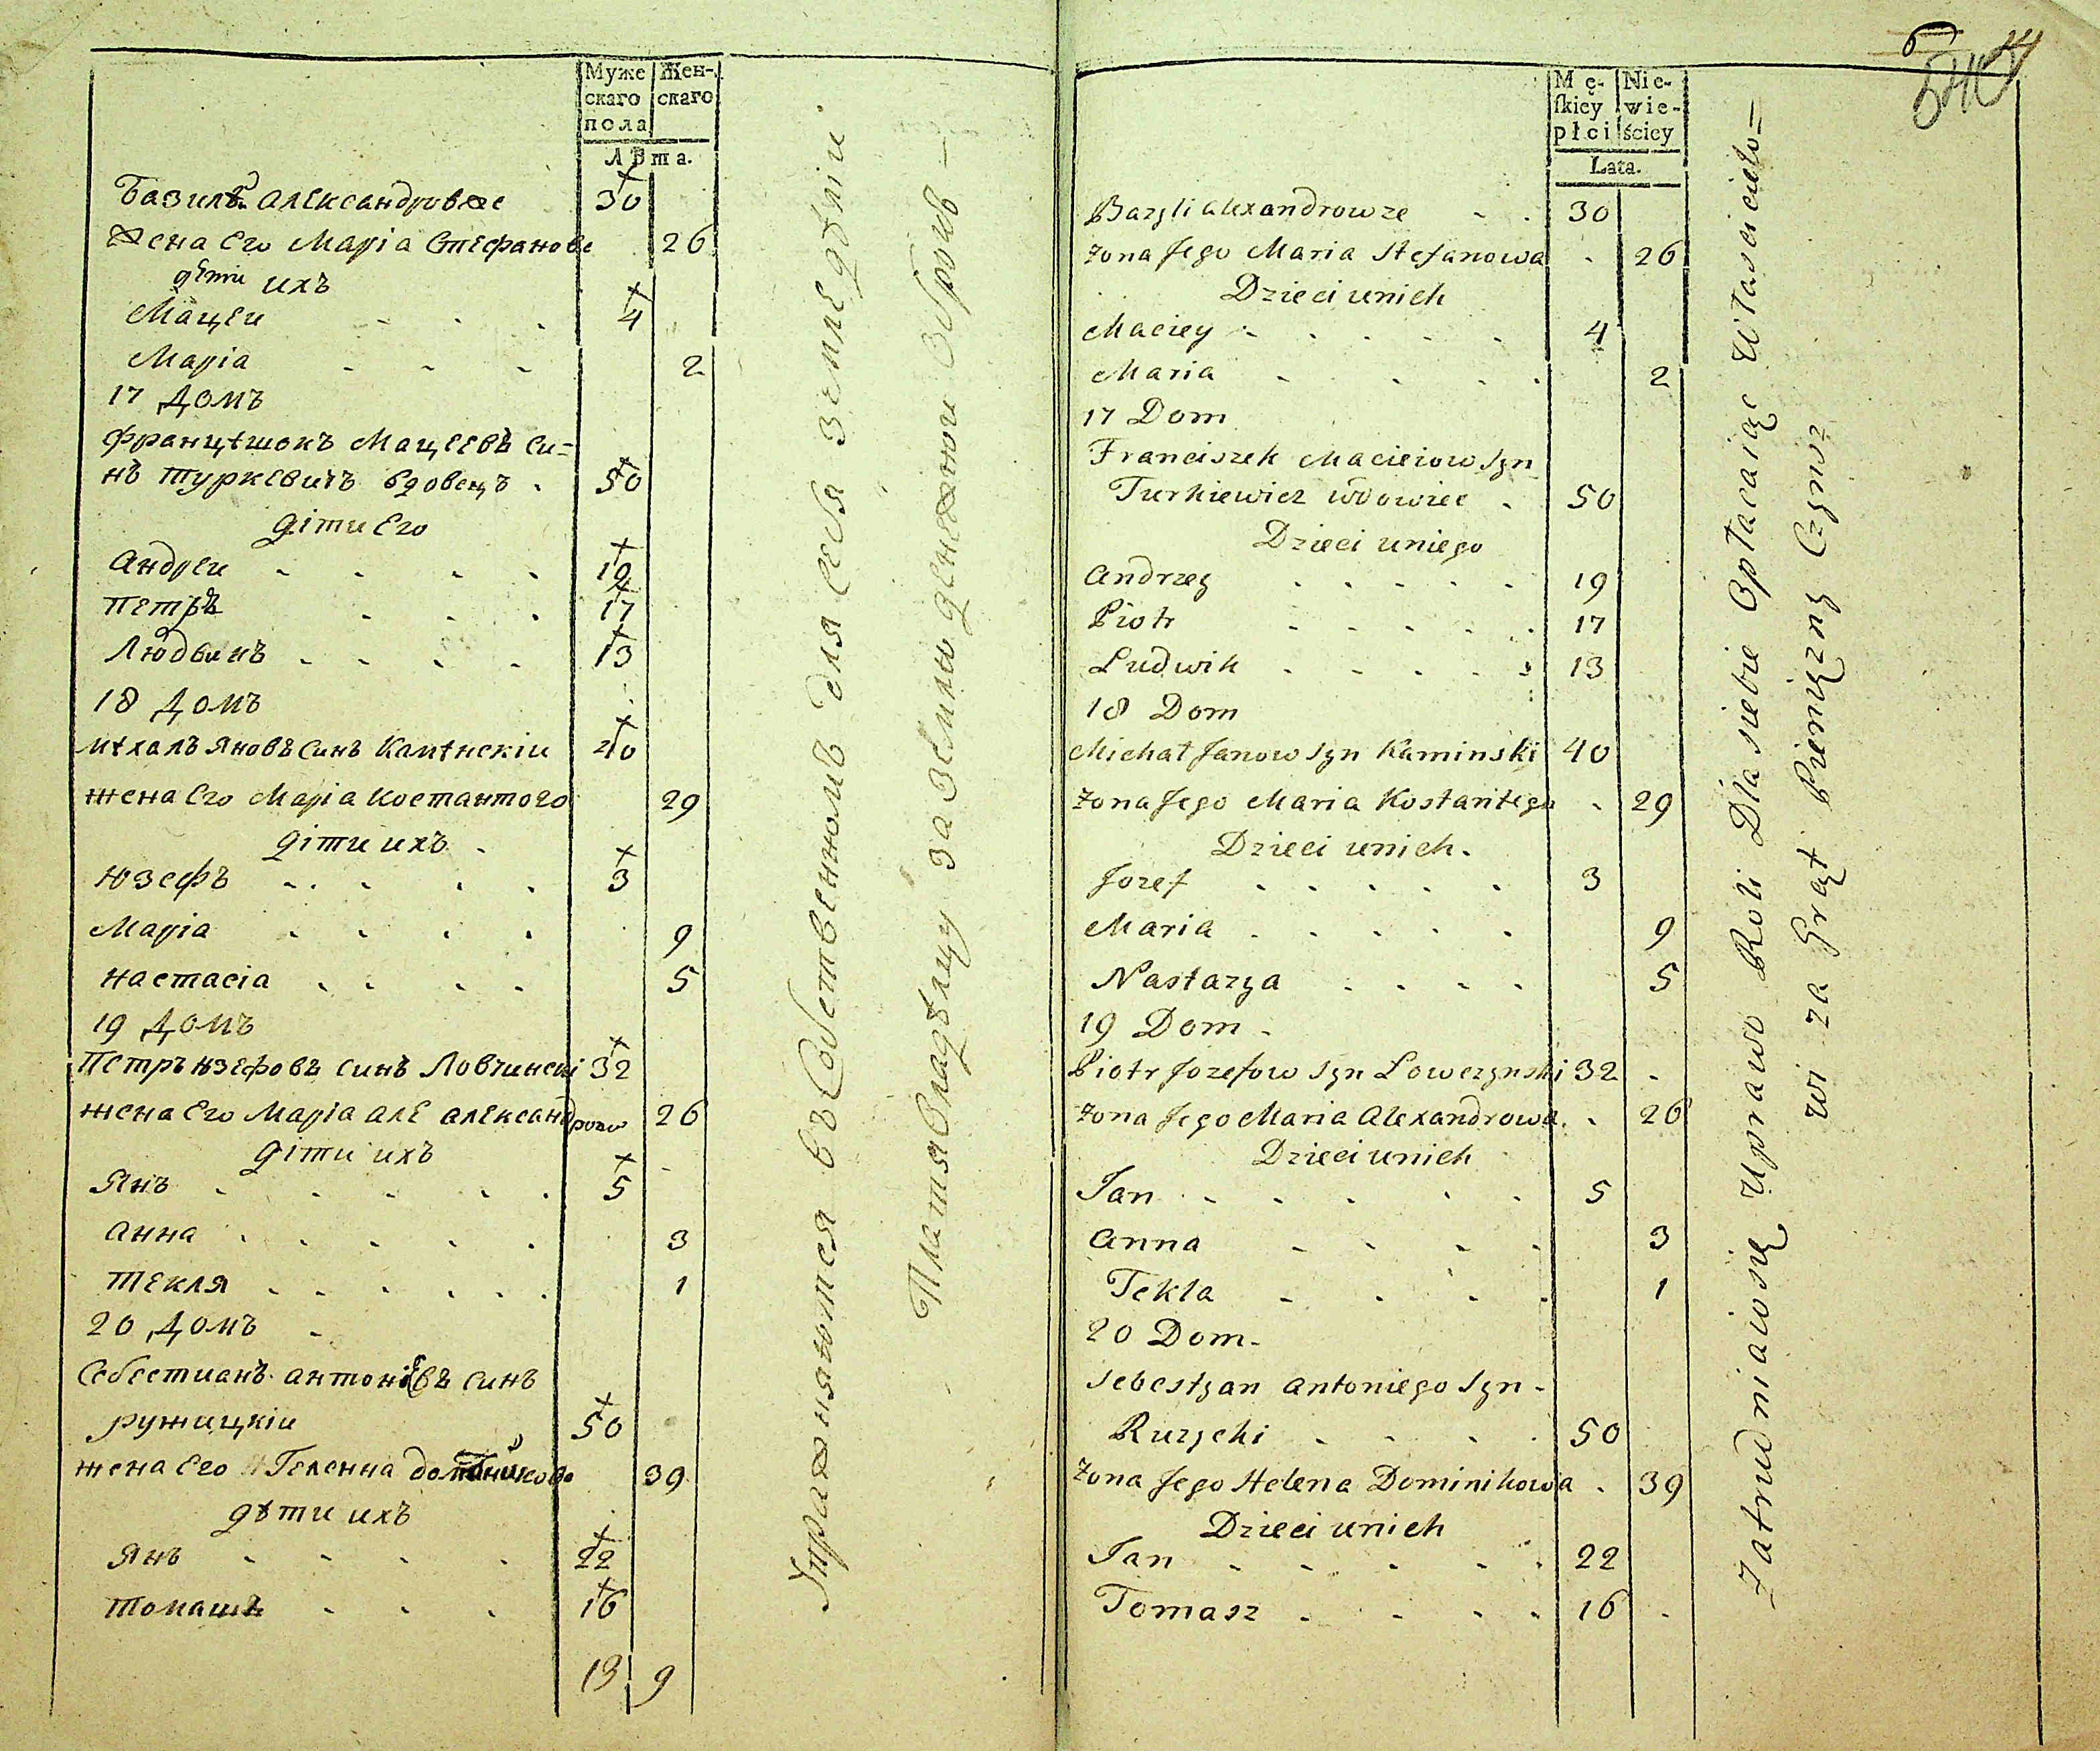 Муже Жен-
скаго скаго
пола
Лѣта.
Базилѣ Александровые 30
Жена Его Марiа Стефанове 26
дѣти ихъ
Мацеи 4
Марiа 2
17 Домъ
Францѣшокъ Мацеевъ Си=
нъ Туркевичъ вдовецъ 50
дiти Его
Андреи 19
Петръ 17
Людвикъ 13
18 Домъ
Мѣхалъ Яновъ Синъ Камѣнскiи 40
жена Его Марiа Костантого 29
дiти ихъ
Юзефъ 3
Марiа 9
Настасiа 5
19 Домъ
Петръ Юзефовъ Синъ Ловчинскi 32
жена Его Марiа але Александрово 26
дiти ихъ
Янъ 5
Анна 3
Текля 1
20 Домъ
Себестианъ Антонiевъ Синъ
ружицкiи 50
жена Его Геленна доминикова 39
дѣти ихъ
Янъ 22
Томашъ 16
13 9
Упражняются въ Собственномъ для себя землѣдѣлiи
Платя Владѣлцу за землю денежнои Зброкъ
6
Mę- Nie-
ſkiey wie-
płci ściey
Lata.
Bazyli Alexandrowze 30
Zona Jego Maria Stefanowa 26
Dzieci unich
Maciey 4
Maria 2
17 Dom
Franciszek Macieiow Syn
Turkiewicz Wdowiec 50
Dzieci uniego
Andrzey 19
Piotr 17
Ludwik 13
18 Dom
Michał Janow Syn Kaminski 40
Zona Jego Maria Kostantego 29
Dzieci unich.
Jozef 3
Maria 9
Nastazya 5
19 Dom
Piotr Jozefow Syn Lowczynski 32
Zona Jego Maria Alexandrowa 26
Dzieci unich
Jan 5
Anna 3
Tekla 1
20 Dom
Sebestyan Antoniego Syn
Ruzycki 50
Zona Jego Helena Dominikowa 39
Dzieci unich
Jan 22
Tomasz 16
Zatrudniaiosię Uprawo Roli Dla siebie Opłacaiąc Właścicielo=
wi za Grąt Pieniężny Czynsz